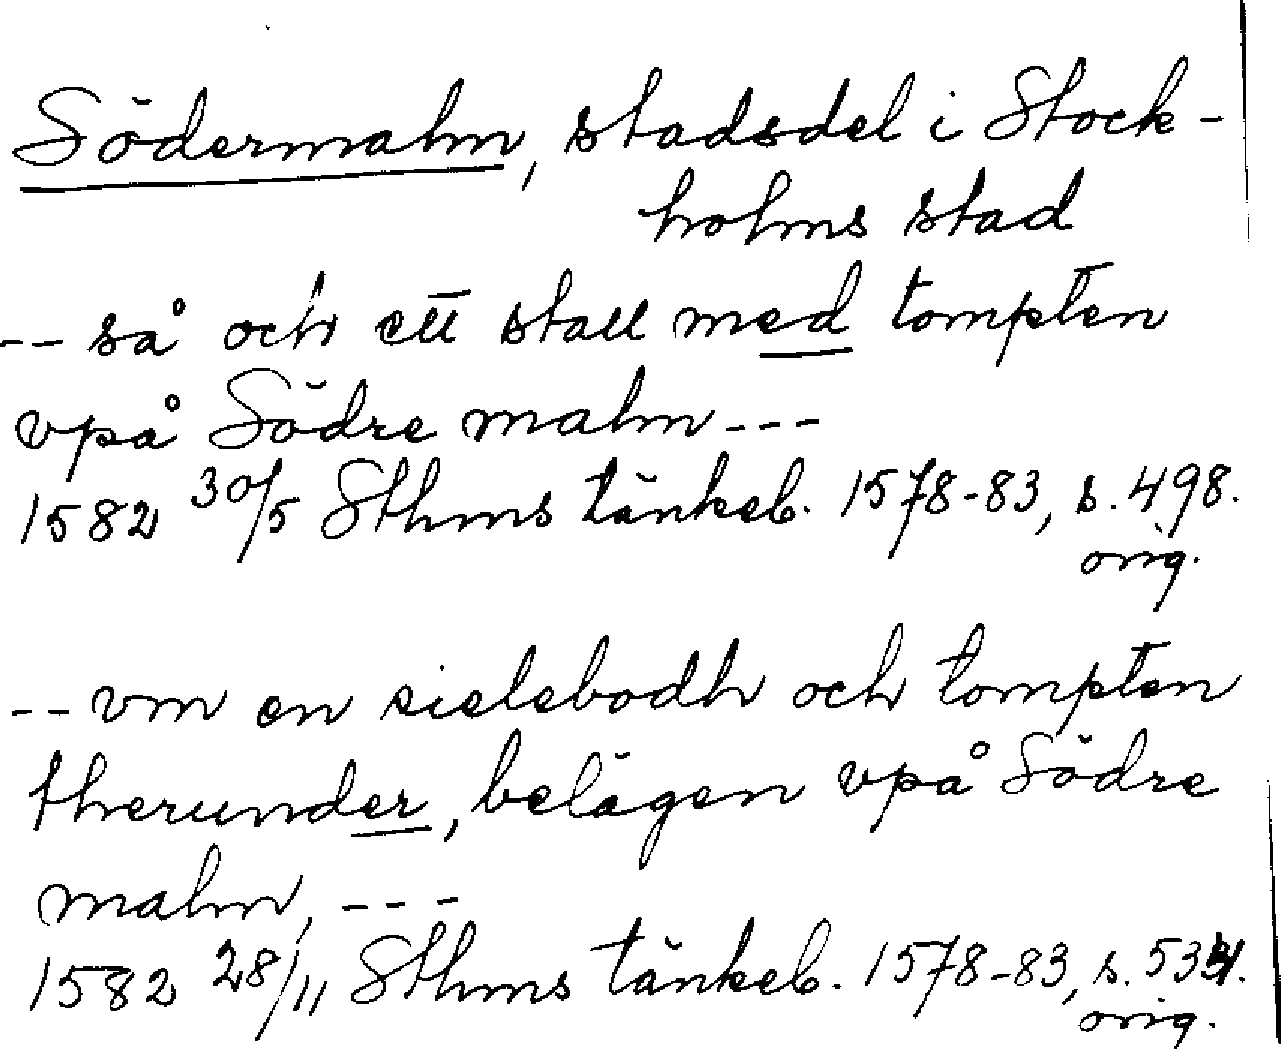 Södermalm, stadsdel i Stock-
holms stad
-- så och ett stall med tompten
vpå Södre malm ---
1582 30/5 Sthms tänkeb. 1578-83, s. 498.
orig.
-- vm en sielebodh och tompten
therunder, belägen vpå Södre
malm, ---
1582 28/11 Sthms tänkeb. 1578-83, s. 534.
orig.